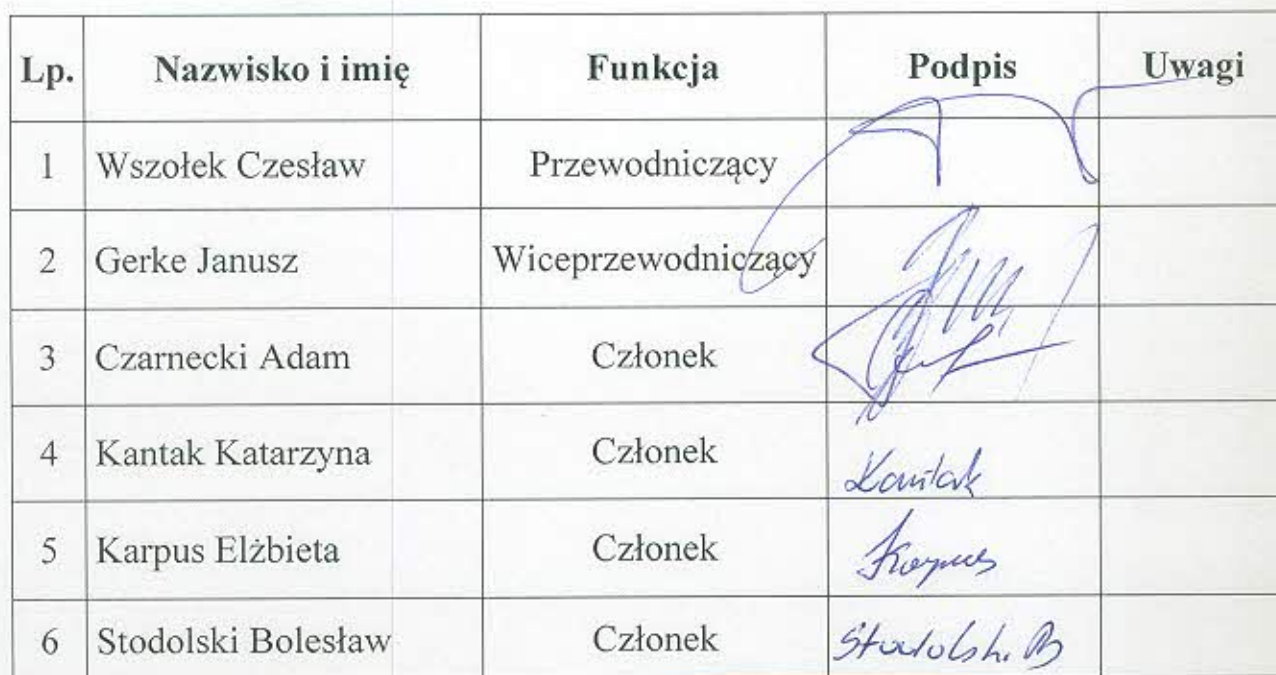 Lp. Nazwisko i imię Funkcja Podpis Uwagi
1 Wszołek Czesław Przewodniczący
2 Gerke Janusz Wiceprzewodniczący
3 Czarnecki Adam Członek
4 Kantak Katarzyna Członek Kantak
5 Karpus Elżbieta Członek Karpus
6 Stodolski Bolesław Członek Stodolski B